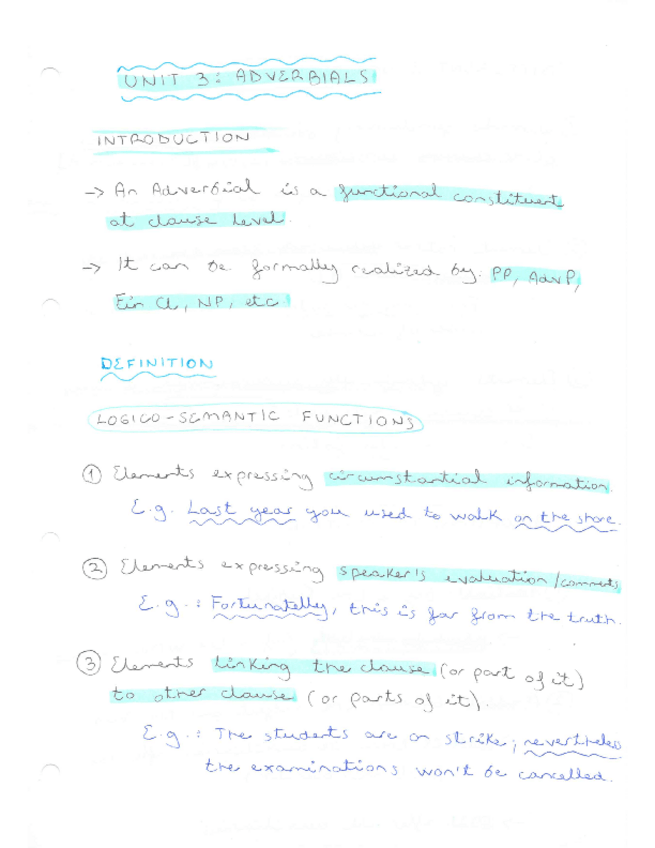 UNIT 3: ADVERBIALS
INTRODUCTION
→ An Adverbial is a functional constituent
at clause level.
→ It can be formally realized by: PP, AdvP,
Fin Cl, NP, etc.
DEFINITION
LOGICO-SEMANTIC FUNCTIONS
① Elements expressing circumstantial information.
E.g. Last year you used to walk on the shore.
② Elements expressing speaker's evaluation/comments
E.g.: Fortunatelly, this is far from the truth.
③ Elements linking the clause (or part of it)
to other clause (or parts of it).
E.g.: The students are on strike; nevertheless
the examinations won't be cancelled.